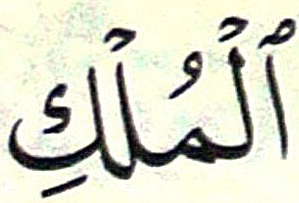 ٱلْمُلْكِ